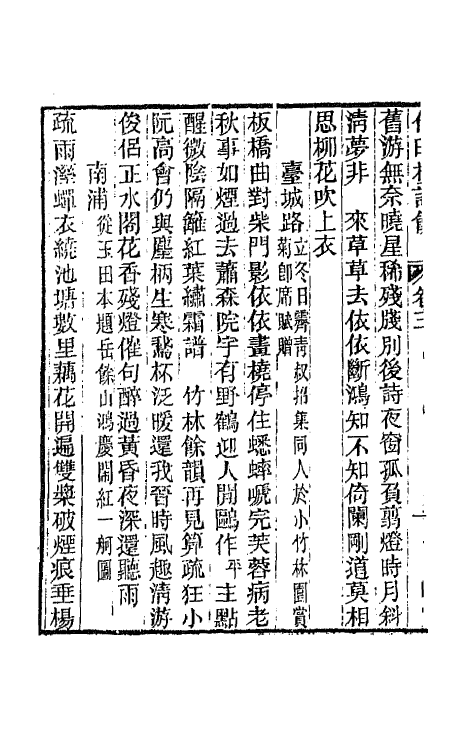 舊游無奈曉星稀殘牋別後詩夜窗孤負翦燈時月斜
清夢非　來草草去依依斷鴻知不知倚闌剛道莫相
思柳花吹上衣
臺城路立冬日霽青叔招集同人於小竹林園賞
菊卽席賦贈
板橋曲對柴門影依依畫橈停住蟋蟀嗁完芙蓉病老
秋事如煙過去蕭森院宇有野鶴迎人閒鷗作平主點
醒微陰隔籬紅葉繡霜譜　竹林餘韻再見算疏狂小
阮高會仍與麈柄生寒鵞杯泛暖還我晉時風趣清游
俊侶正水閣花香殘燈催句醉過黃昏夜深還聽雨
南浦從玉田本題岳餘山鴻慶閙紅一舸圖
疏雨溼蟬衣繞池塘數里藕花開遍雙槳破煙痕垂楊